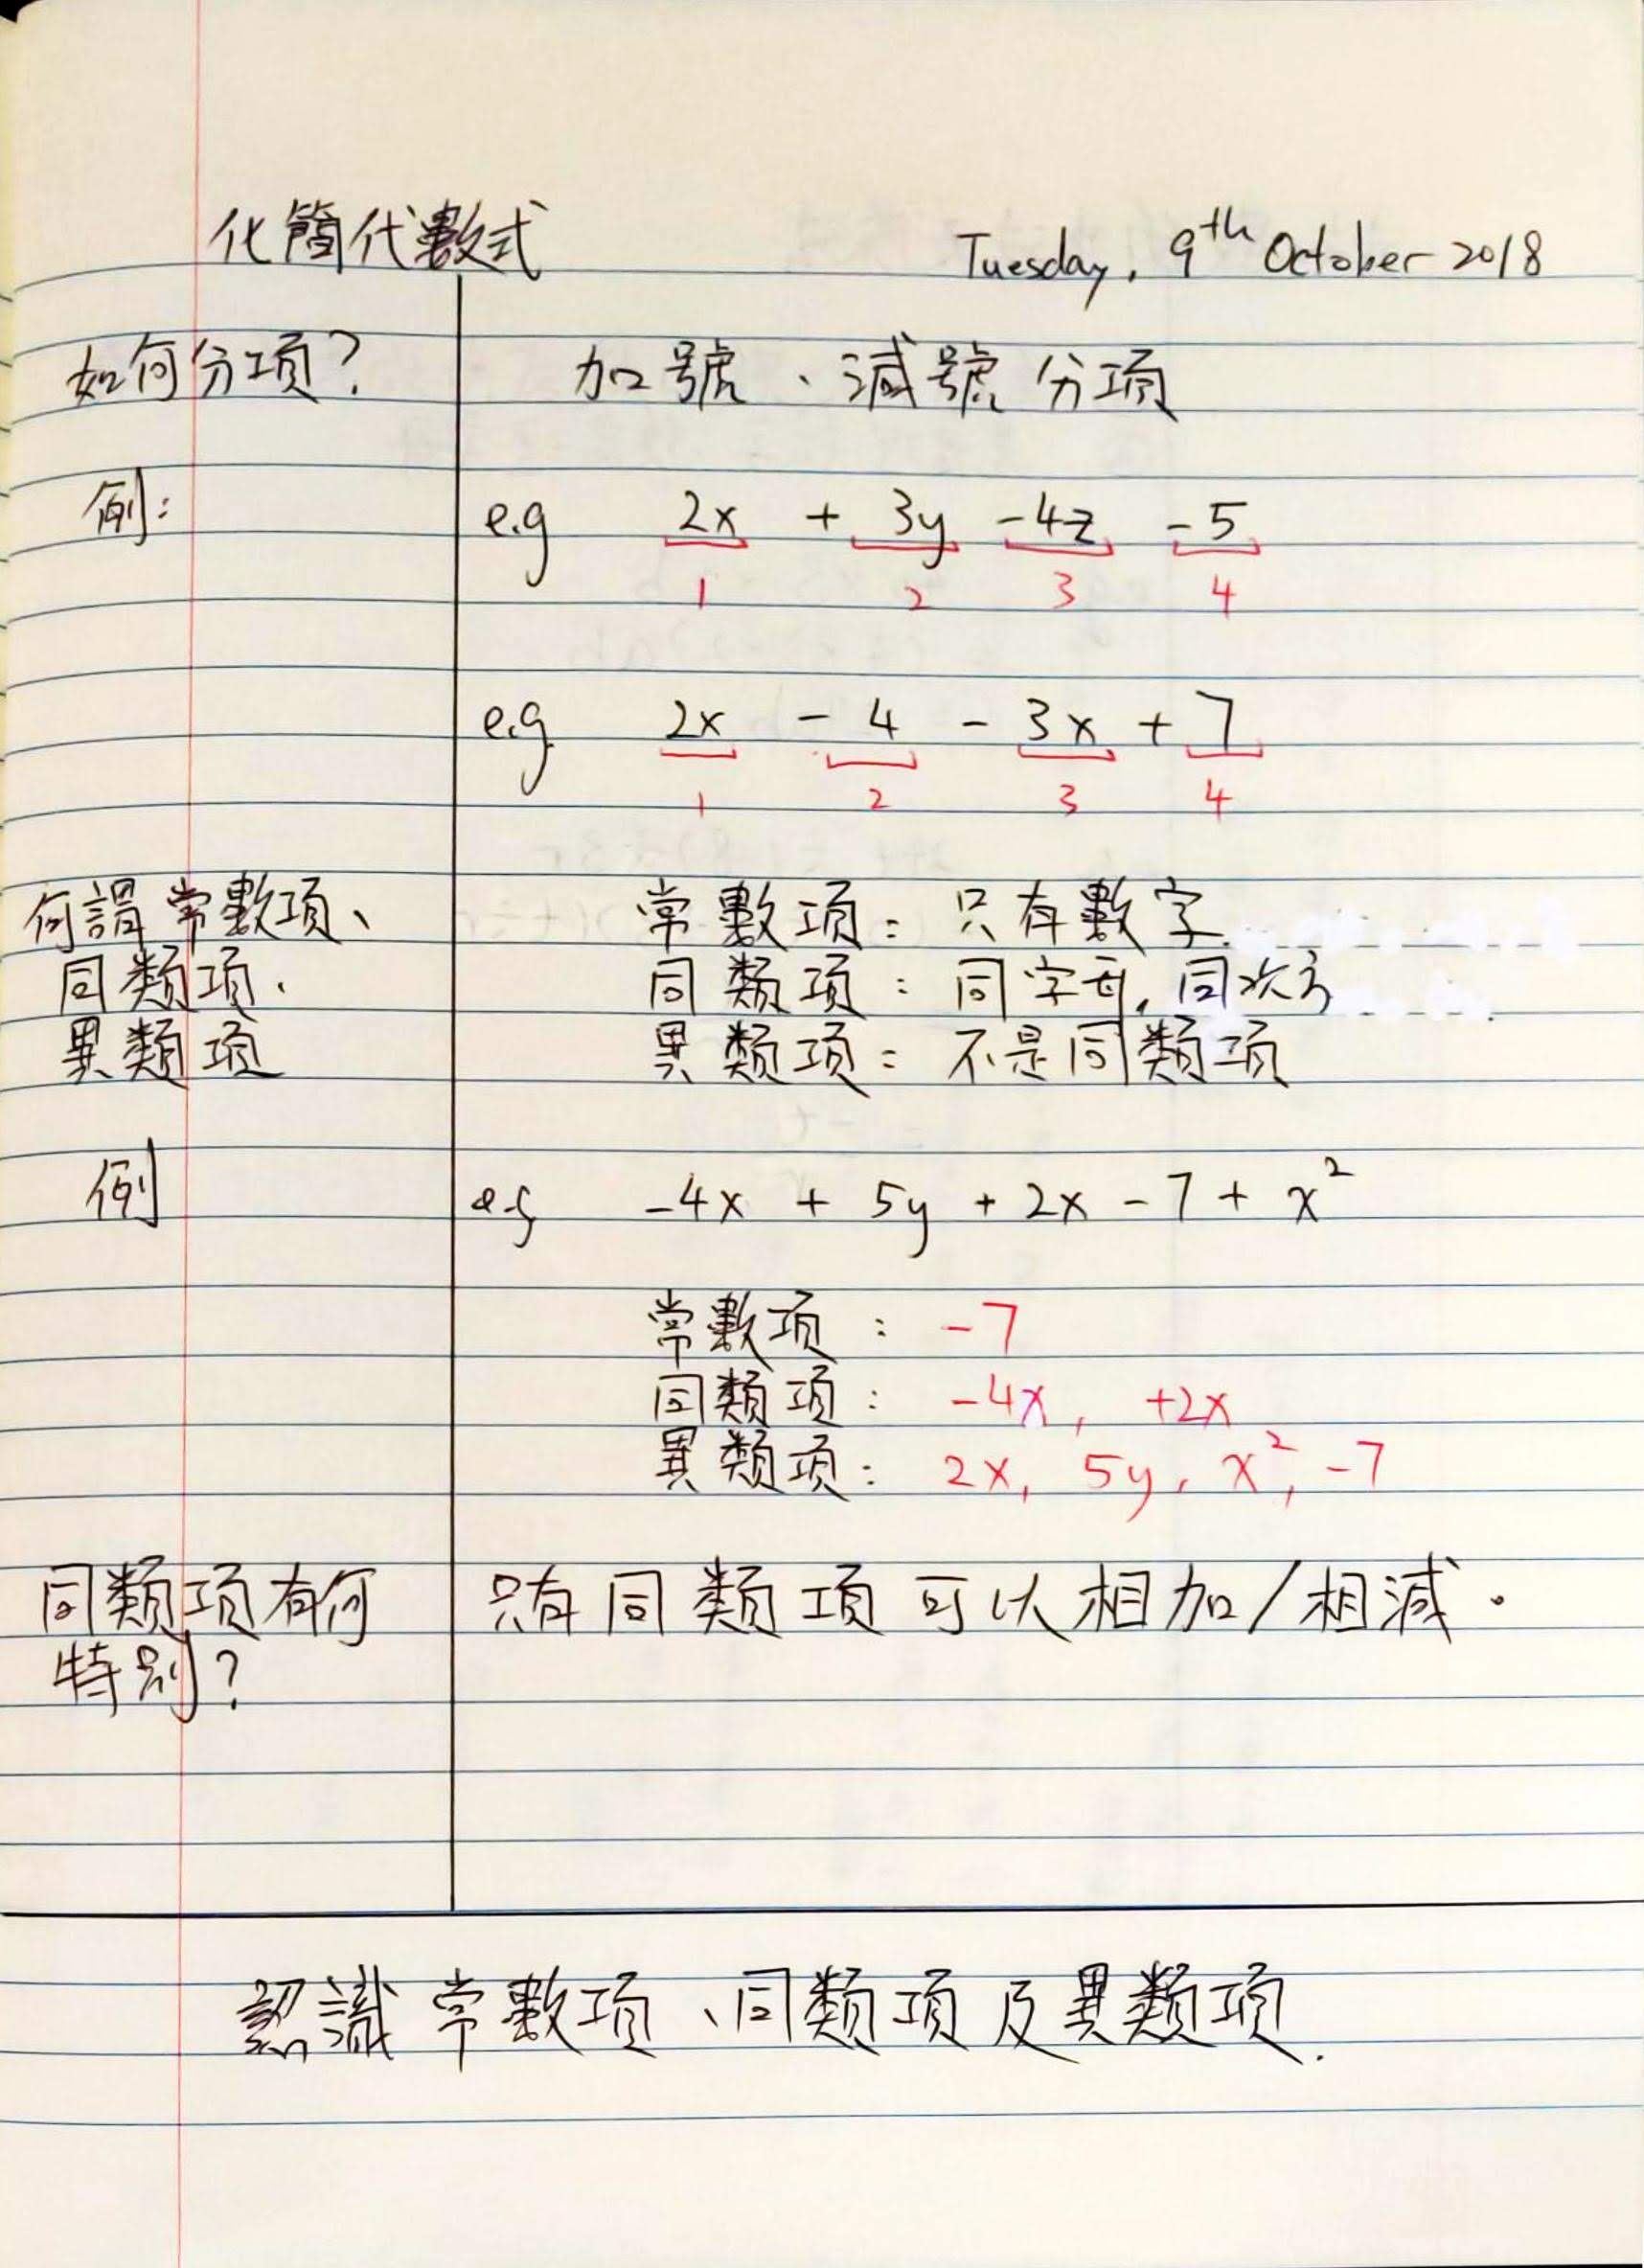 化簡代數式 Tuesday, 9th October 2018
如何分項? 加號、減號分項
例: e.g 2x + 3y -4z -5
1 2 3 4
e.g 2x - 4 - 3x + 7
1 2 3 4
何謂常數項、 常數項：只有數字.
同類項、 同類項：同字母, 同次方
異類項 異類項：不是同類項
例 e.g -4x + 5y + 2x - 7 + x²
常數項：-7
同類項：-4x, +2x
異類項：2x, 5y, x², -7
同類項有何 只有同類項可以相加/相減.
特別?
認識常數項、同類項及異類項.